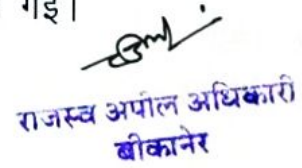 गई।
राजस्व अपील अधिकारी
बीकानेर